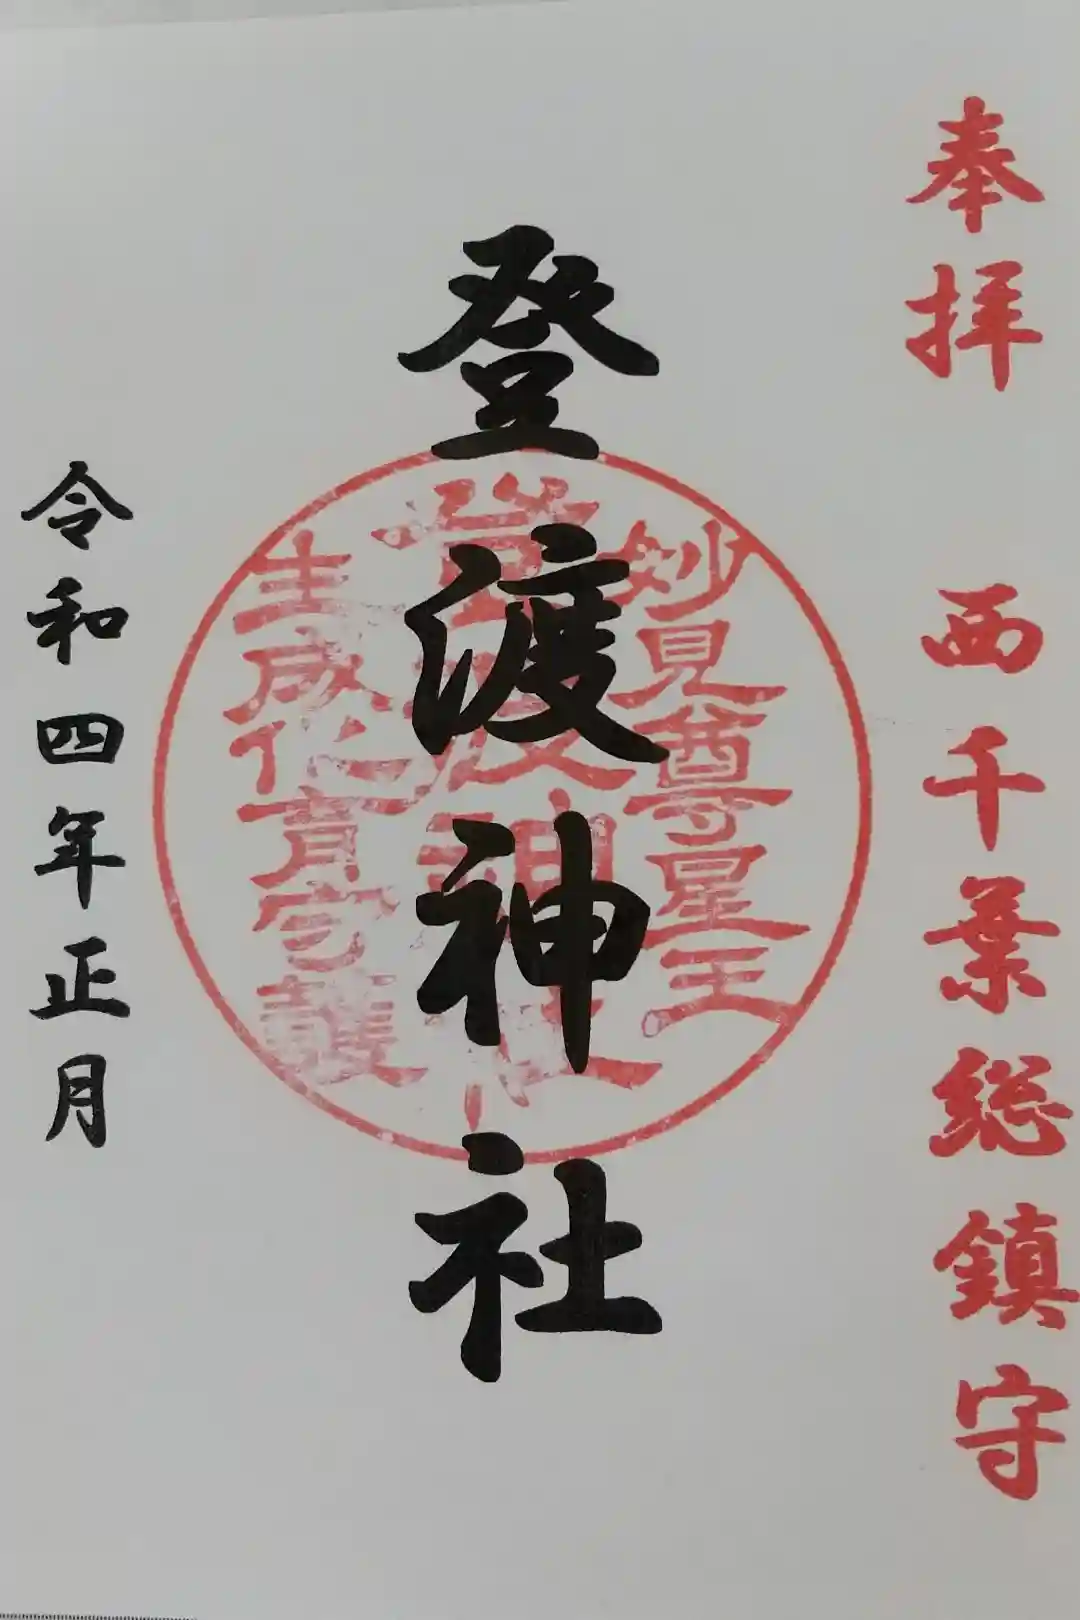 奉拝 西千葉総鎮守
登渡神社
妙見尊星王
登渡神社
生成化育守護
令和四年正月